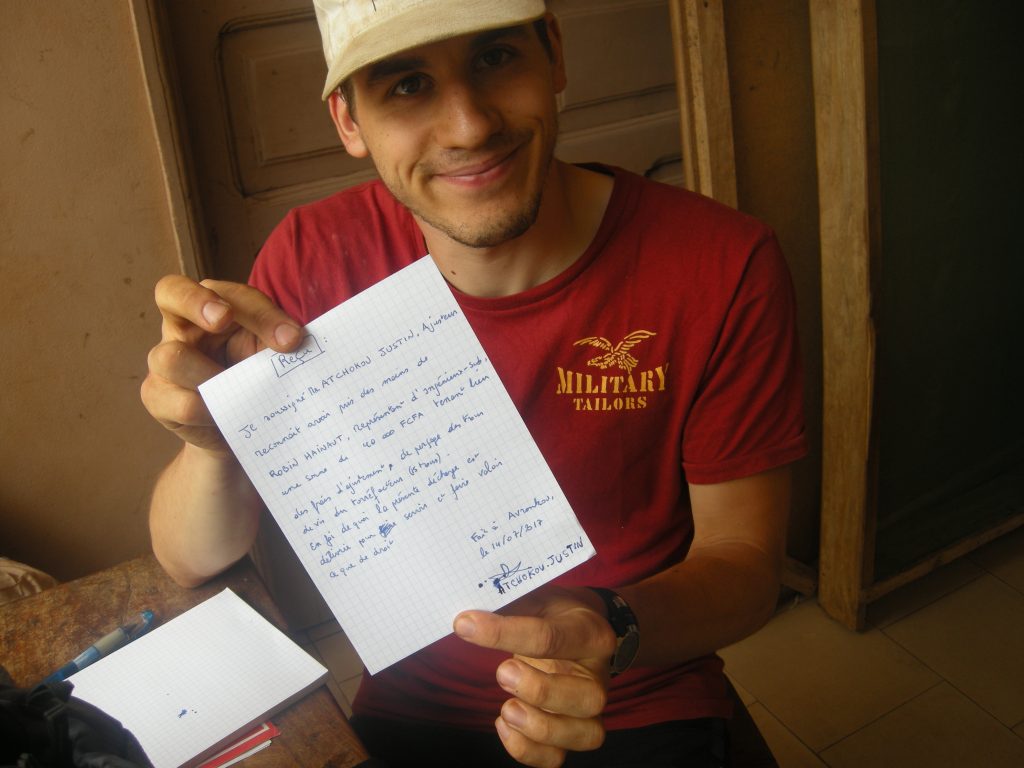 Reçu :
Je soussigné Mr ATCHOKOU JUSTIN, Ajusteur
reconnait avoir pris des mains de
ROBIN HAINAUT, représentant d'Ingénieux-Sud,
une somme de 40 000 FCFA tenant lieu
des frais d'ajustement, de perçage des trous
de vis du torréfacteur (65 trous).
En foi de quoi la présente décharge est
délivrée pour servir et faire valoir
ce que de droit
Fait à Avrankou,
le 14/07/2017
ATCHOKOU JUSTIN
MILITARY
TAILORS